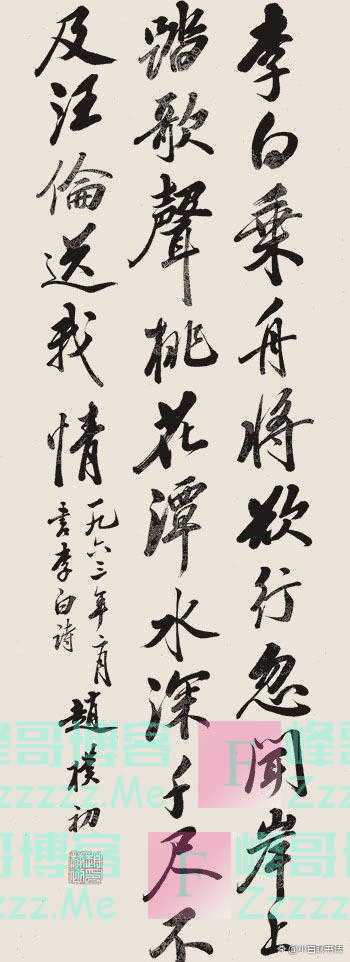 李白乘舟將欲行忽聞岸上
踏歌聲桃花潭水深千尺不
及汪倫送我情
一九六三年月
書李白詩
趙樸初
哥博客
zzzzz.Me
哥博客
zzzz.Me